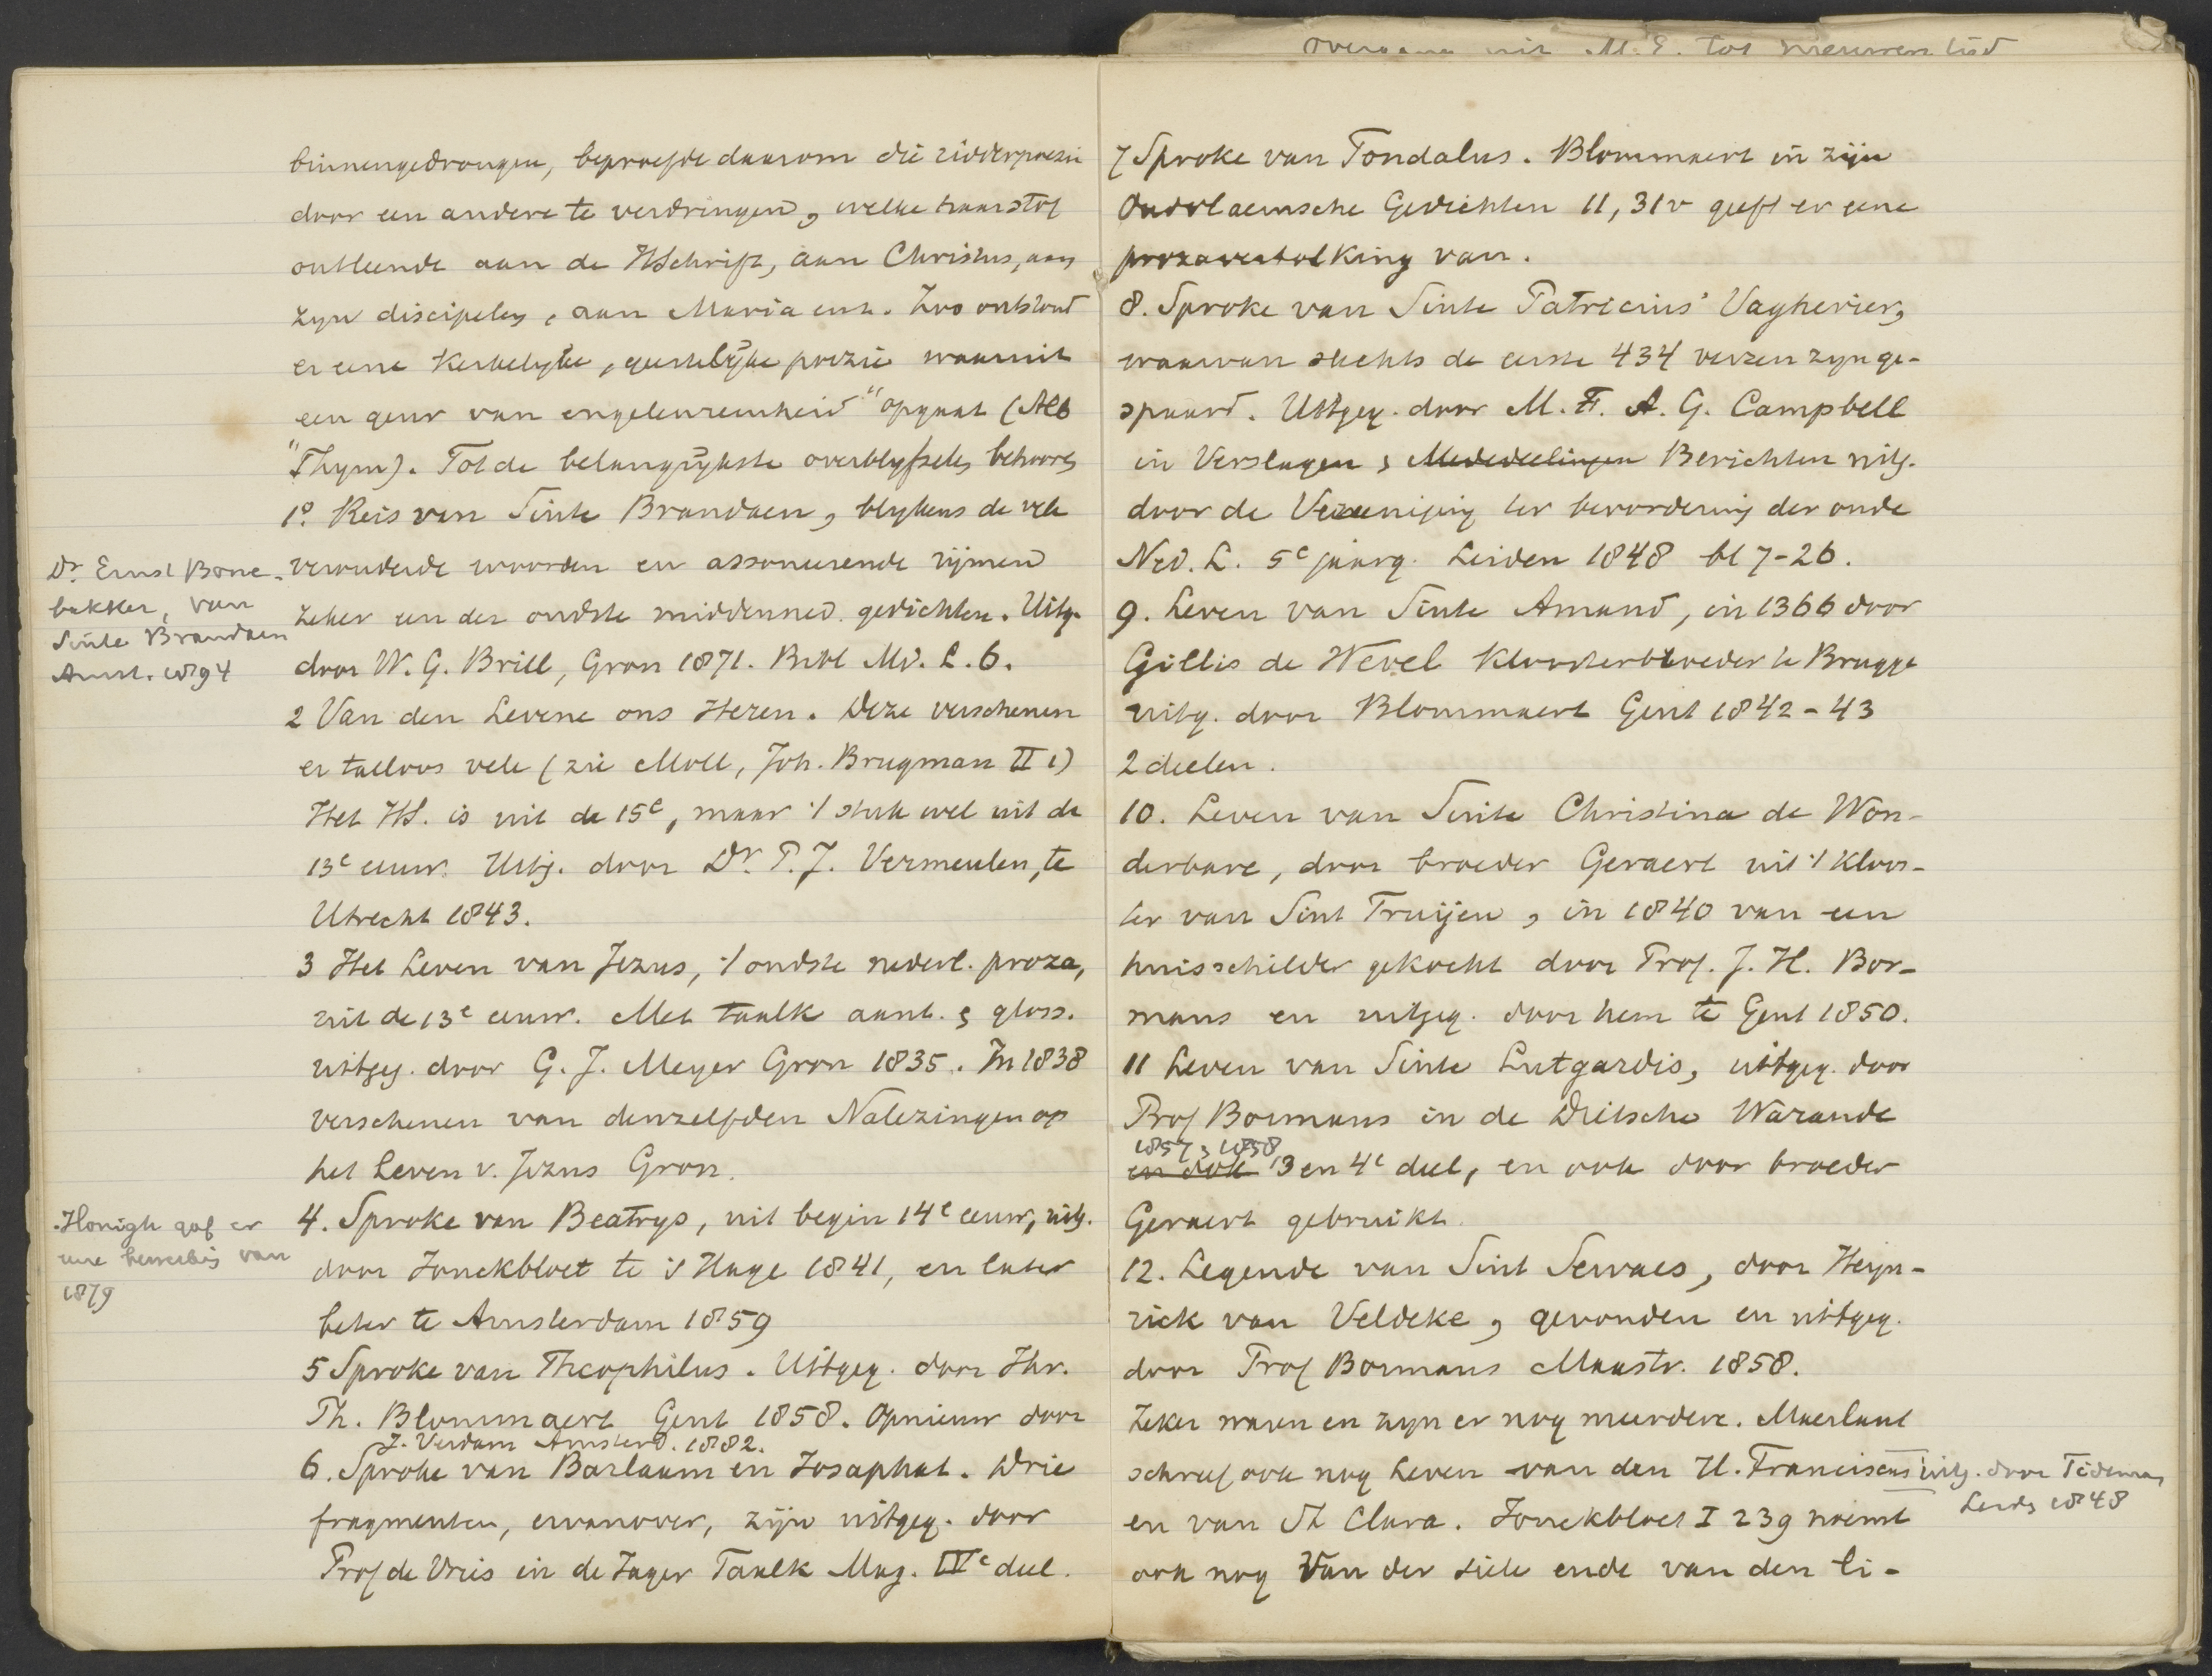 binnengedrongen, beproefde daarom die ridderpoezie
door een andere te verdringen, welke haar stof
ontleende aan de HSchrift, aan Christus, aan
zyn discipelen, aan Maria enz. Zoo ontstond
er eene kerkelyke, geestelyke poezie waaruit
een geur van engelenreinheid" opgaat (Alb
"Thym). Tot de belangrykste overblyfselen behooren
1º. Reis van Sinte Brandaen, blykens de vele
verouderde woorden en assoneerende rijmen
zeker een der oudste middenned. gedichten. Uitg.
door W. G. Brill, Gron 1871. Bibl Md. L. 6.
Dr. Ernst Bone-
bakker, van
Sinte Brandaen
Amst. 1894
2 Van den Levene ons Heren. Deze verschenen
er talloos vele (zie Moll, Joh. Brugman II 1)
Het HS. is uit de 15e, maar 't stuk wel uit de
13e eeuw. Uitg. door Dr. P. J. Vermeulen, te
Utrecht 1843.
3 Het Leven van Jezus, 't oudste nederl. proza,
uit de 13e eeuw. Met taalk aant. & gloss.
uitgeg. door G. J. Meyer Gron 1835. In 1838
verschenen van denzelfden Nalezingen op
het Leven v. Jezus Gron.
4. Sproke van Beatrys, uit begin 14e eeuw, uitg.
door Jonckbloet te 's Hage 1841, en later
beter te Amsterdam 1859
Honigh gaf er
eene van
1879
5 Sproke van Theophilus. Uitgeg. door Jhr.
Th. Blommaert Gent 1858. Opnieuw door
J. Verdam Amsterd. 1882.
6. Sproke van Barlaam en Josaphat. Drie
fragmenten, ervanover, zijn uitgeg. door
Prof de Vries in de Jager Taalk Mag. IVe deel.
overgang uit M.E. tot nieuwen tijd
7 Sproke van Tondalus. Blommaert in zijn
Oudvlaemsche Gedichten II, 31v geeft er eene
prozavertolking van.
8. Sproke van Sinte Patricius' Vaghevier,
waarvan slechts de eerste 434 verzen zyn ge-
spaard. Uitgeg. door M. F. A. G. Campbell
in Verslagen & Mededeelingen Berichten uitg.
door de Vereeniging ter bevordering der oude
Ned. L. 5e jaarg. Leiden 1848 bl 7-26.
9. Leven van Sinte Amand, in 1366 door
Gillis de Wevel kloosterbroeder te Brugge
uitg. door Blommaert Gent 1842-43
2 deelen.
10. Leven van Sinte Christina de Won-
derbare, door broeder Geraert uit 't kloos-
ter van Sint Truijen, in 1840 van een
huisschilder gekocht door Prof. J. H. Bor-
mans en uitgeg. door hem te Gent 1850.
11 Leven van Sinte Lutgardis, uitgeg. door
Prof Bormans in de Dietsche Warande
1857 & 1858
en ook 3 en 4e deel, en ook door broeder
Geraert gebruikt.
12. Legende van Sint Servaes, door Heyn-
rick van Veldeke, gevonden en uitgeg.
door Prof Bormans Maastr. 1858.
Zeker waren en zyn er nog meerdere. Maerlant
schreef ook nog Leven van den H. Franciscus uitg. door Tideman,
Leids 1848
en van St Clara. Jonckbloet I 239 noemt
ook nog Van der siele ende van den li-